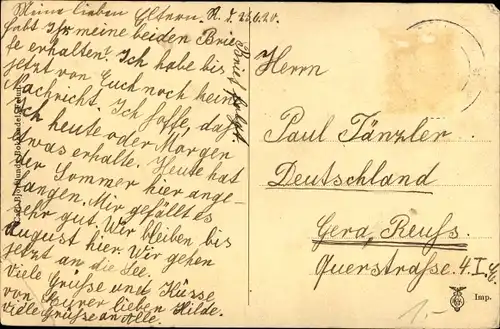 Meine lieben Eltern. 25.6.20.
habt Ihr meine beiden Brie-
fe erhalten? Ich habe bis
jetzt von Euch noch keine
Nachricht. Ich hoffe, daß
ich heute oder Morgen
etwas erhalte. Heute hat
der Sommer hier ange-
fangen. Mir gefällt es
sehr gut. Wir bleiben bis
August hier. Wir gehen
jetzt an die See.
Viele Grüsse und Küsse
von Eurer lieben Hilde.
Viele Grüsse an Alle.
Brief folgt.
Herrn
Paul Tänzler
Deutschland
Gera, Reuss.
Querstraße 4. I
Imp.
1.-